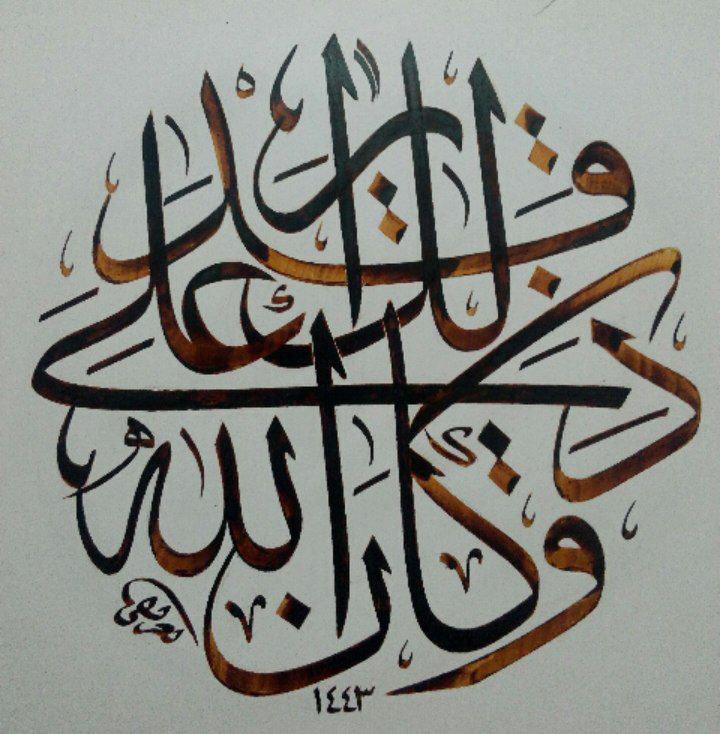 وَكَانَ اللهُ عَلَى ذَلِكَ قَدِيرًا
١٤٤٣